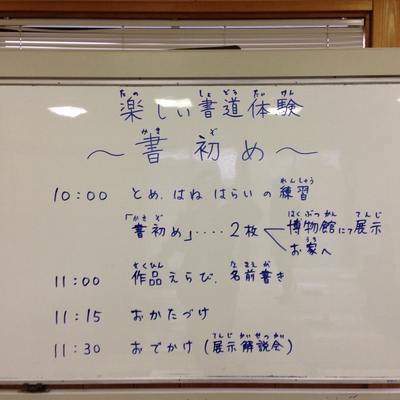 楽しい書道体験
～書初め～
10:00 とめ、はね はらいの練習
「書初め」‥‥2枚 博物館にて展示
お家へ
11:00 作品えらび、名前書き
11:15 おかたづけ
11:30 おでかけ(展示解説会)